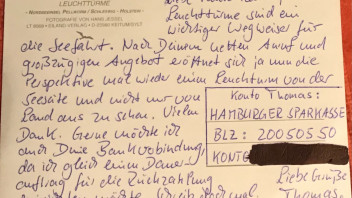 LEUCHTTÜRME
NORDERNEY, PELLWORM / SCHLESWIG - HOLSTEIN
FOTOGRAFIE VON HANS JESSEL
Leuchttürme sind ein
wichtiger Wegweiser für
die Seefahrt. Nach Deinem netten Anruf und
großzügigen Angebot eröffnet sich ja nun die
Perspektive mal wieder einen Leuchtturm von der
Seeseite und nicht nur von
Land aus zu sehen. Vielen
Dank. Gerne möchte ich
auf Deine Bankverbindung,
da ich gleich einen Dauer-
auftrag für die Rückzahlung
Konto Thomas:
HAMBURGER SPARKASSE
BLZ: 20050550
KONTO
Liebe Grüße
Thomas.